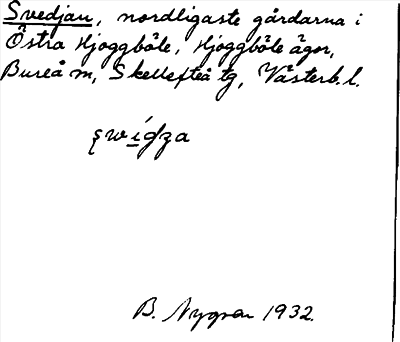 Svedjan, nordligaste gårdarna i
Östra Hjoggböle, Hjoggböle ägor,
Bureå m, Skellefteå tg, Västerb. l.
B. Nygren 1932.